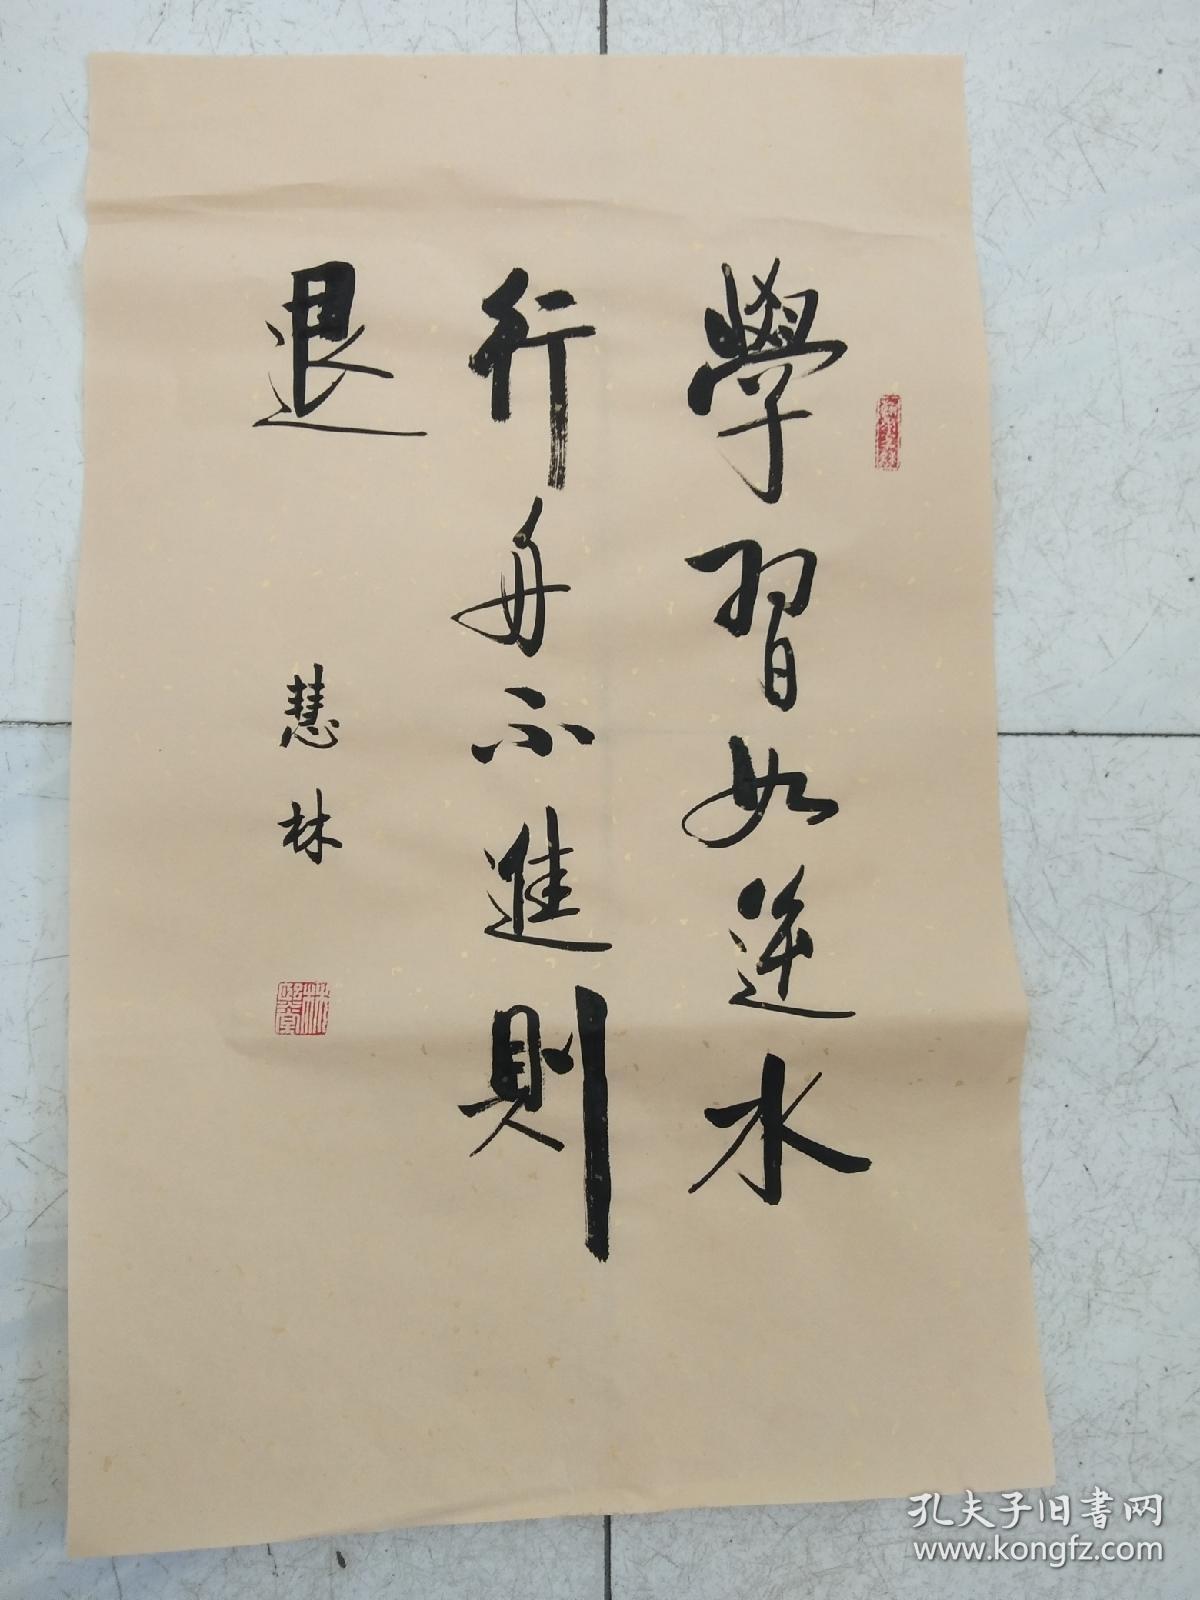 學習如逆水
行舟不進則
退
慧林
孔夫子旧书网
www.kongfz.com